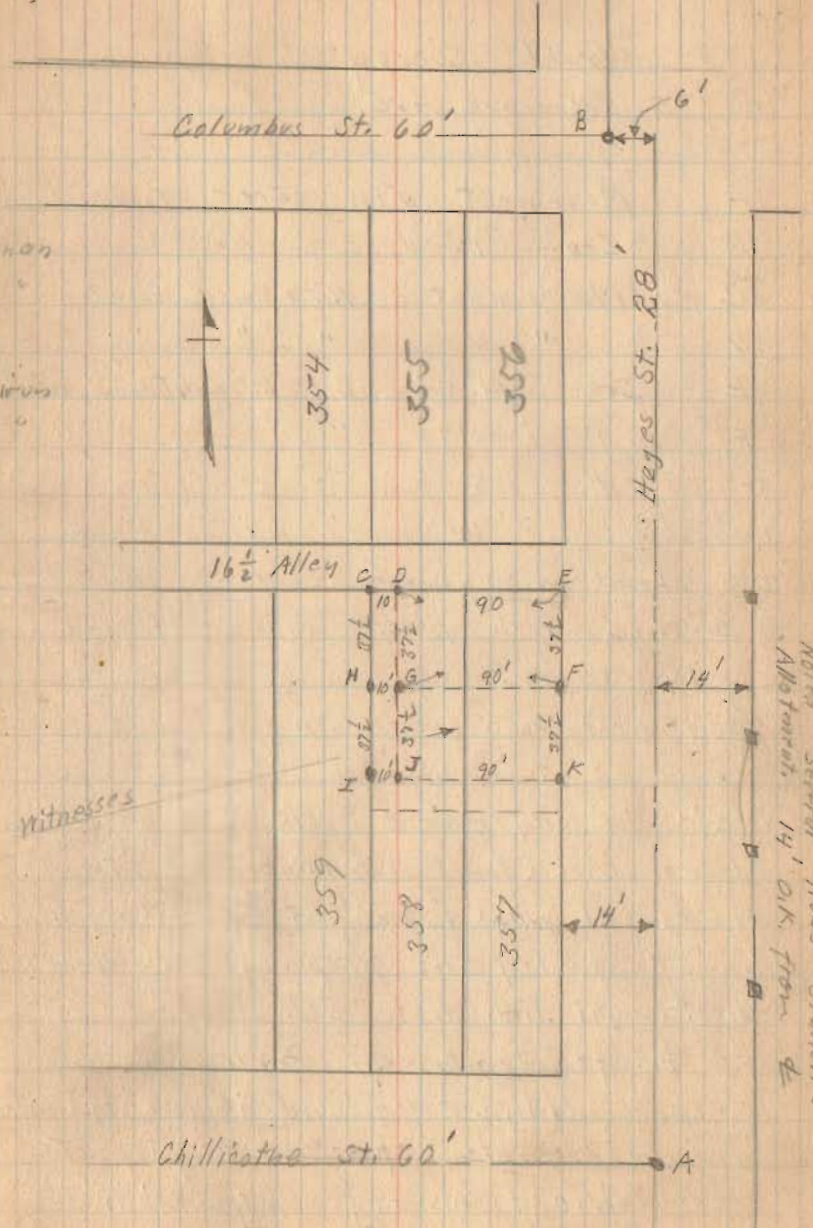 6'
Columbus St. 60'
B
Hayes St. 28'
354
355
356
16½ Alley
C D E
10 90
37½ 37½ 37½
H 10' G 90' F
14'
37½ 37½ 37½
I 10' J 90' K
Witnesses
359
358
357
14'
Allotment. 14' O.K. from ℄
Chillicothe St. 60'
A